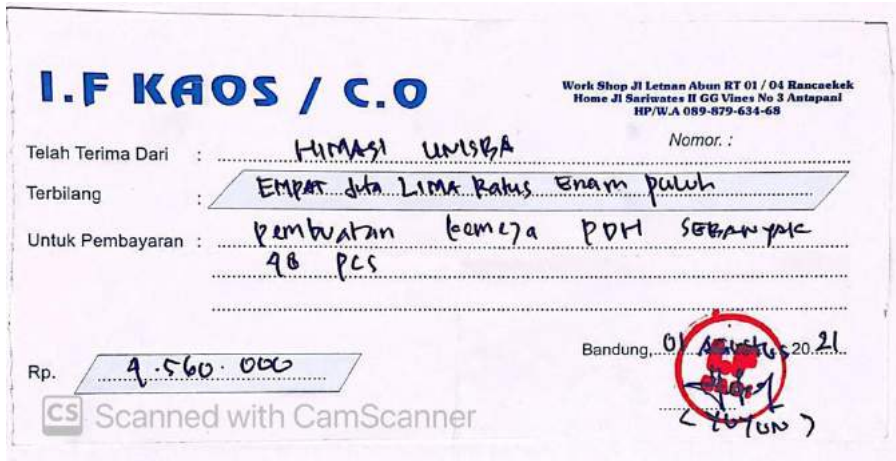 I.F KAOS / C.O
Work Shop Jl Letnan Abun RT 01 / 04 Rancaekek
Home Jl Sariwates II GG Vines No 3 Antapani
HP/W.A 089-879-634-68
Nomor. :
Telah Terima Dari : HIMASI UNISBA
Terbilang : EMPAT Juta LIMA Ratus Enam puluh
Untuk Pembayaran : pembuatan kemeja PDH SEBANYAK
48 PCS
Bandung, 01 Agustus 2021
Rp. 4.560.000
(YUYUN)
CS Scanned with CamScanner